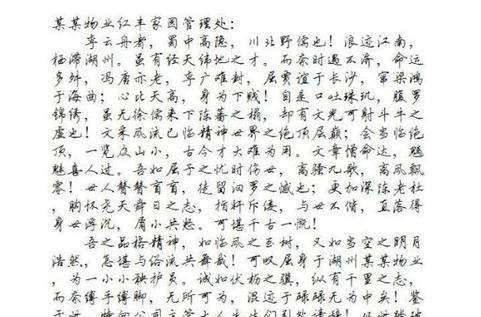 某某物业红丰家园管理处:
李云舟者，蜀中高隐，川北野儒也！浪迹江南，
栖滞湖州。虽有经天纬地之才。而奈时遇不济，命运
多舛，冯唐亦老，李广难封，屈贾谊于长沙，窜梁鸿
于海曲；心比天高，身为下贱！自是口吐珠玑，腹罗
锦绣，虽无徐儒来下陈蕃之榻，却有文光可射斗牛之
虚也！文采风流已临精神世界之绝顶层巅；会当临绝
顶，一览众山小，古今才大难为用。文章憎命达，魑
魅喜人过。吾如屈子之忧时伤世，高骚九歌，离风飘
零！世人瞽瞽盲盲，徒留汨罗之憾也；更加深陈老杜
，胸怀尧天舜日之志，指奸斥佞，与世不偕，直落得
身世浮沉，屑小共怒。可堪千古一恸！
吾之品格精神，如临风之玉树，又如当空之明月
浩然，怎堪与俗流共舞哉！可叹屈身于湖州某某物业
，为一小小秩护员。诚如伏枥之骥，纵有千里之志，
而奈缚手缚脚，无所可为，混迹于碌碌无为中矣！鉴